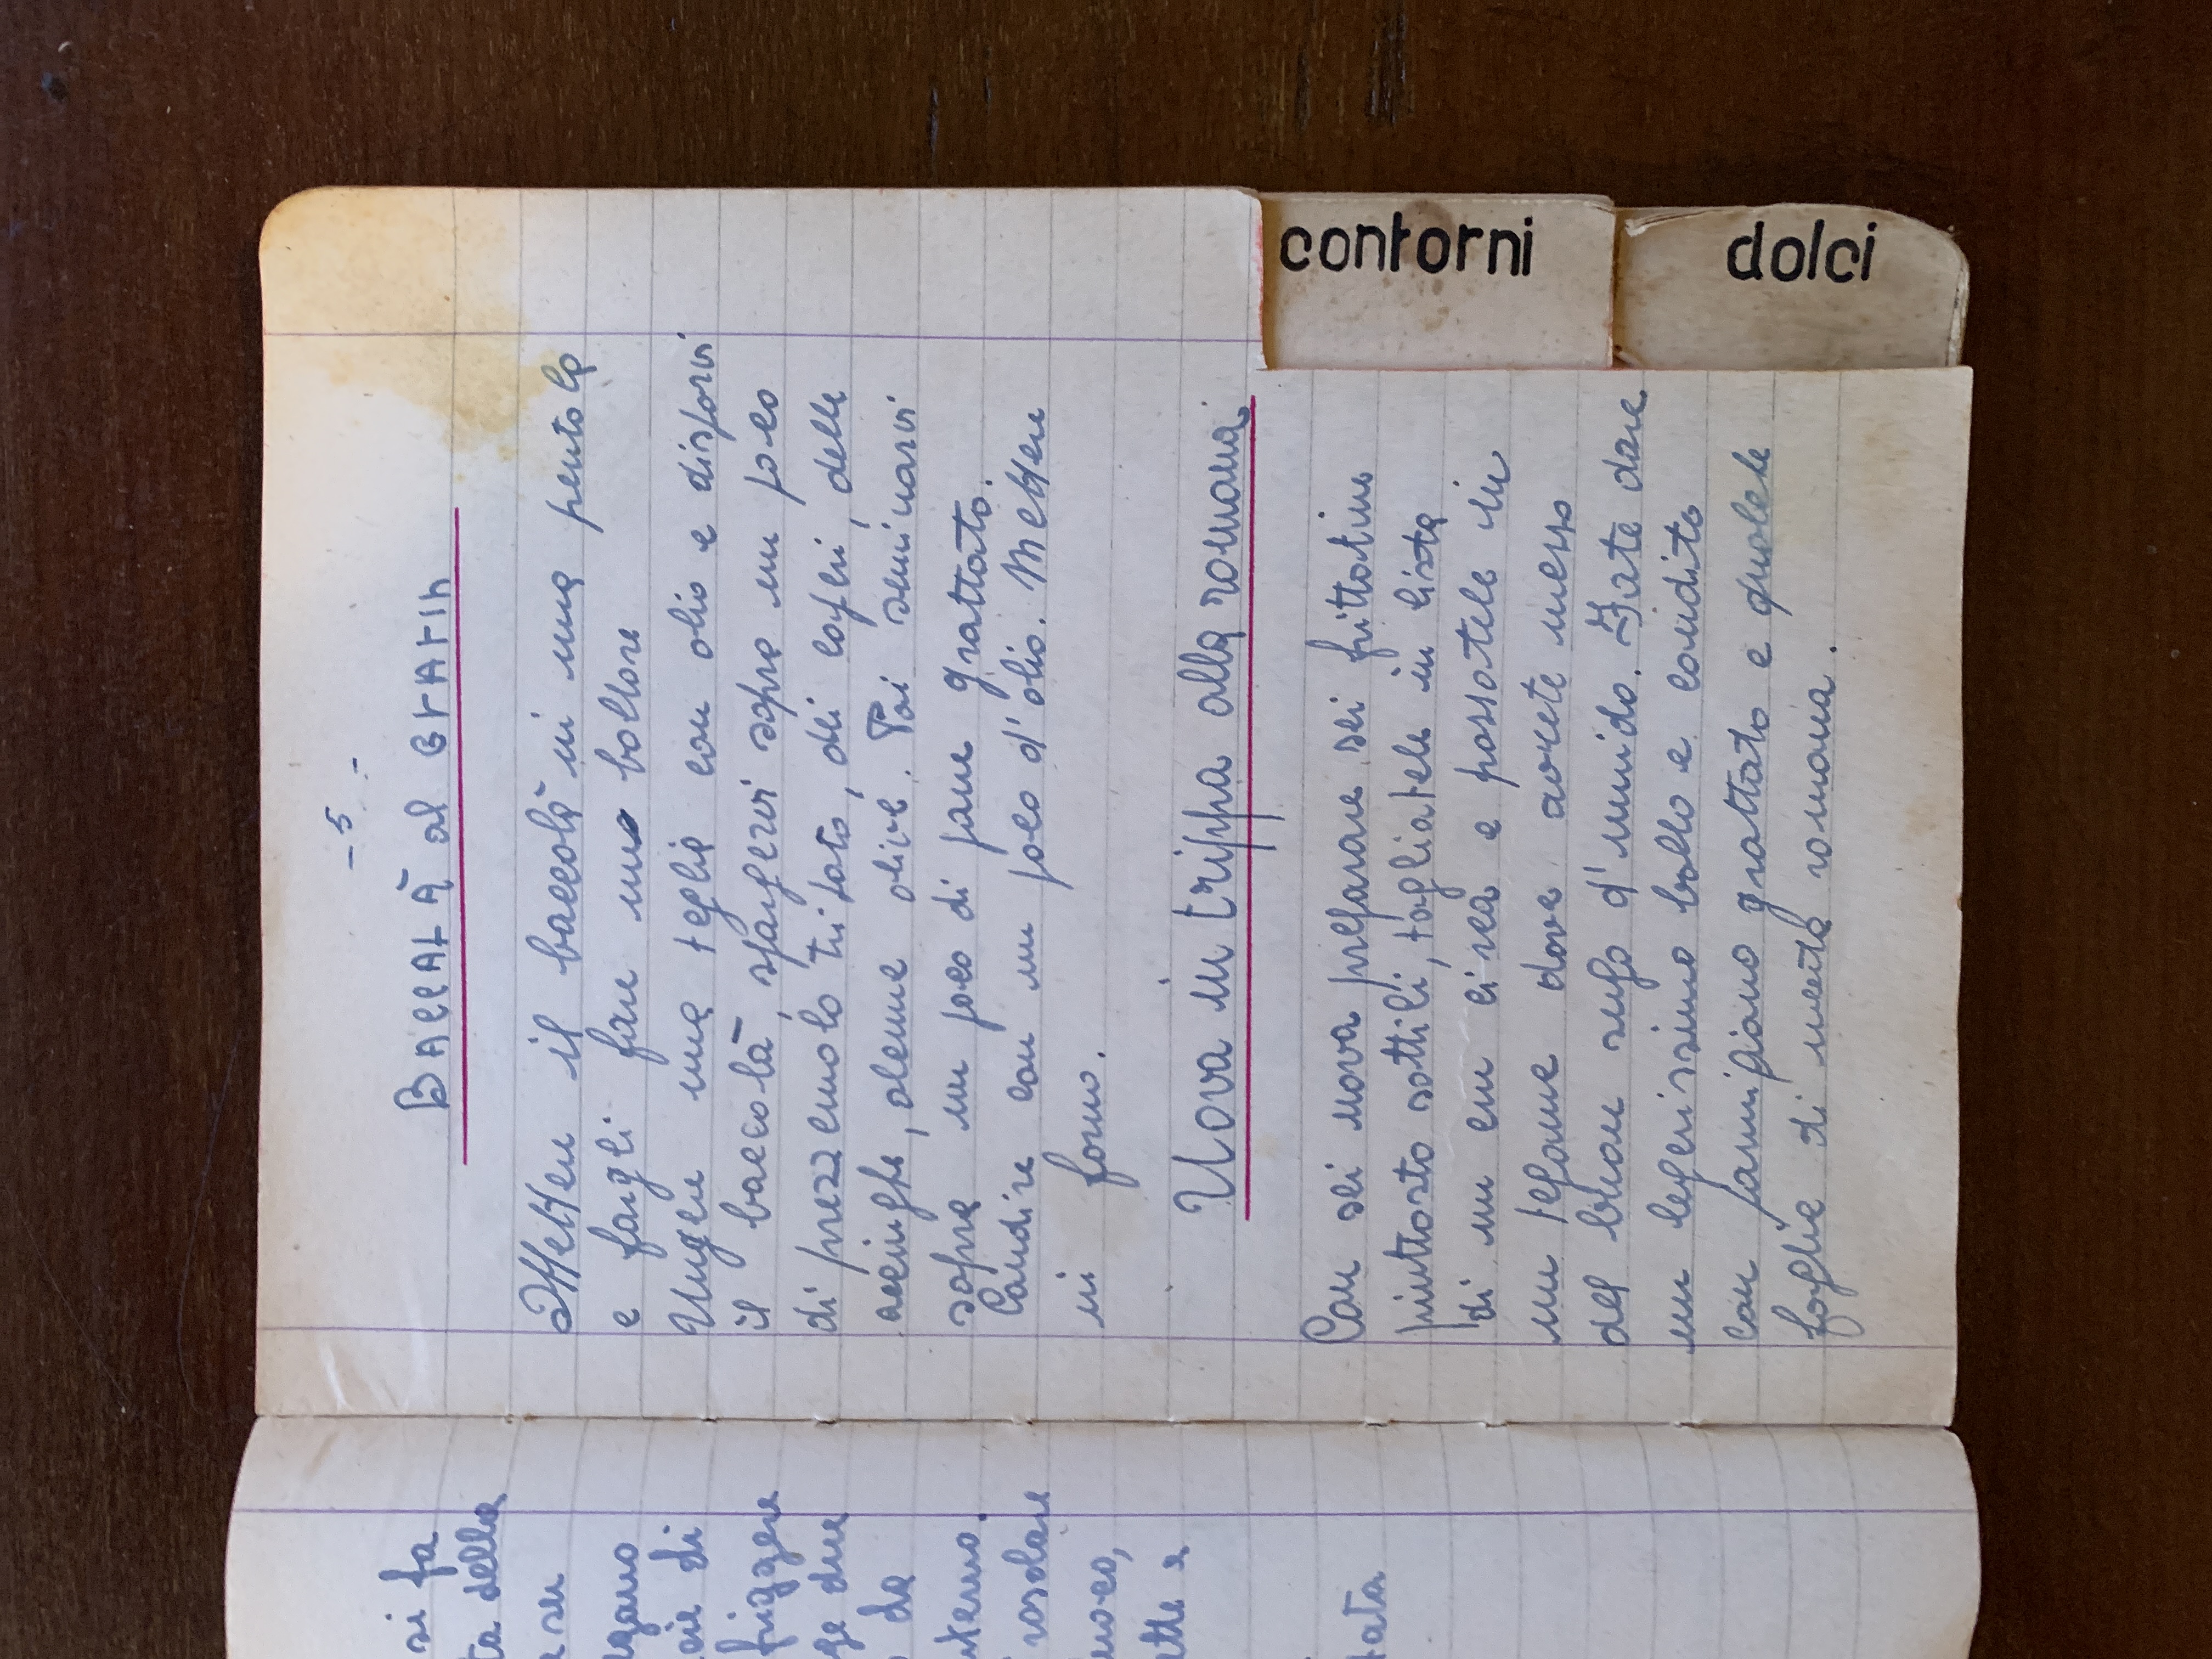 si fa
ta della
e su
lgano
cie di
friggere
ge due
da
nterno.
rosolare
uoco,
ette e
tata
- 5 -
BACCALÀ al GRATIN
Mettere il baccalà in una pentola
e fargli fare uno bollore
Ungere una teglia con olio e disporvi
il baccalà, spargervi sopra un poco
di prezzemolo tritato, dei caperi, delle
acciughe, alcune olive. Poi seminarvi
sopra un poco di pane grattato.
Condire con un poco d'olio. Mettere
in forno.
Uova in trippa alla romana
Con sei uova preparare sei frittatine
piuttosto sottili, tagliatele in liste
di un cm circa e passatele in
un tegame dove avrete messo
del buon sugo d'umido. Fate dare
un legerissimo bollo e condite
con parmigiano grattato e qualche
foglia di menta romana.
contorni
dolci